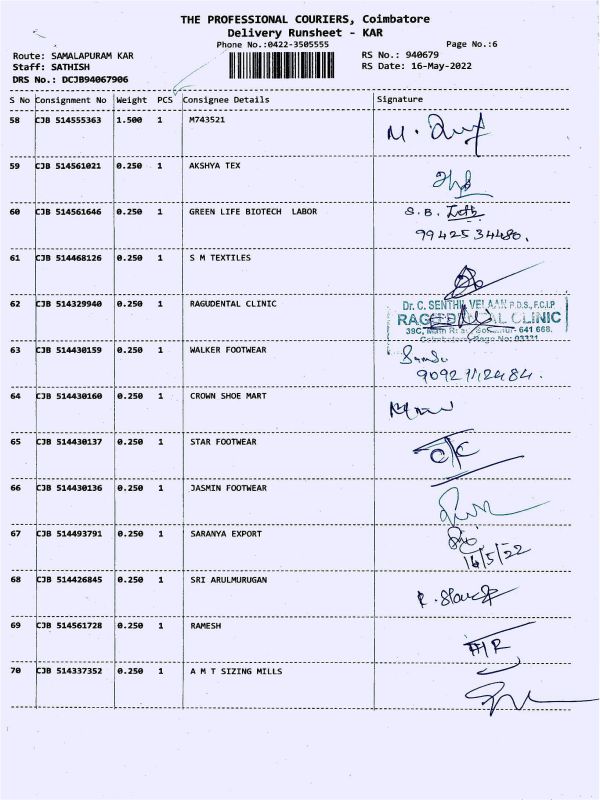 THE PROFESSIONAL COURIERS, Coimbatore
Delivery Runsheet - KAR
Phone No.:0422-3505555
Page No.:6
Route: SAMALAPURAM KAR
RS No.: 940679
Staff: SATHISH
RS Date: 16-May-2022
DRS No.: DCJB94067906
S No Consignment No Weight PCS Consignee Details Signature
58 CJB 514555363 1.500 1 M743521
59 CJB 514561021 0.250 1 AKSHYA TEX
60 CJB 514561646 0.250 1 GREEN LIFE BIOTECH LABOR S.B.
9942534480.
61 CJB 514468126 0.250 1 S M TEXTILES
62 CJB 514329940 0.250 1 RAGUDENTAL CLINIC
Dr. C. SENTHIL VELAAN P.D.S., F.C.I.P
CLINIC
39C, Main 641 668.
63 CJB 514430159 0.250 1 WALKER FOOTWEAR
64 CJB 514430160 0.250 1 CROWN SHOE MART
65 CJB 514430137 0.250 1 STAR FOOTWEAR
66 CJB 514430136 0.250 1 JASMIN FOOTWEAR
67 CJB 514493791 0.250 1 SARANYA EXPORT
16/5/22
68 CJB 514426845 0.250 1 SRI ARULMURUGAN
69 CJB 514561728 0.250 1 RAMESH
70 CJB 514337352 0.250 1 A M T SIZING MILLS